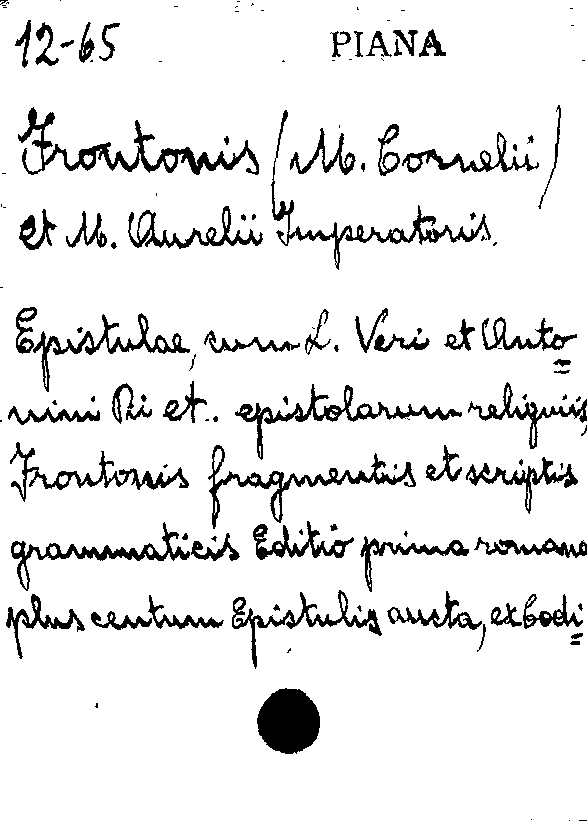 12-65 PIANA
Frontonis (M. Cornelii)
et M. Aurelii Imperatoris.
Epistulae, cum L. Veri et Anto=
nini Pii et. epistolarum reliquiis,
Frontonis fragmentis et scriptis
grammaticis Editio prima romana
plus centum Epistulis aucta, ex Codi=